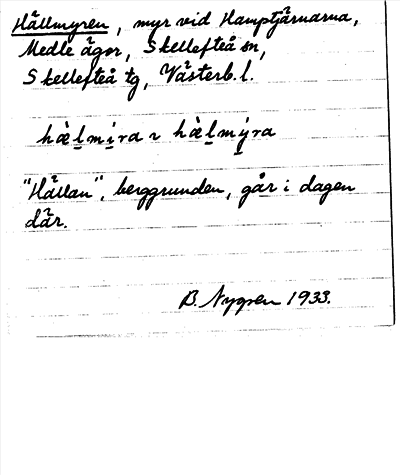 Hällmyren, myr vid Hamptjärnarna,
Medle ägor, Skellefteå sn,
Skellefteå tg, Västerb. l.
hæ̀l̠mi̠ra ~ hæ̀l̠mýra
"Hällan", berggrunden, går i dagen
där.
B. Nygren 1933.